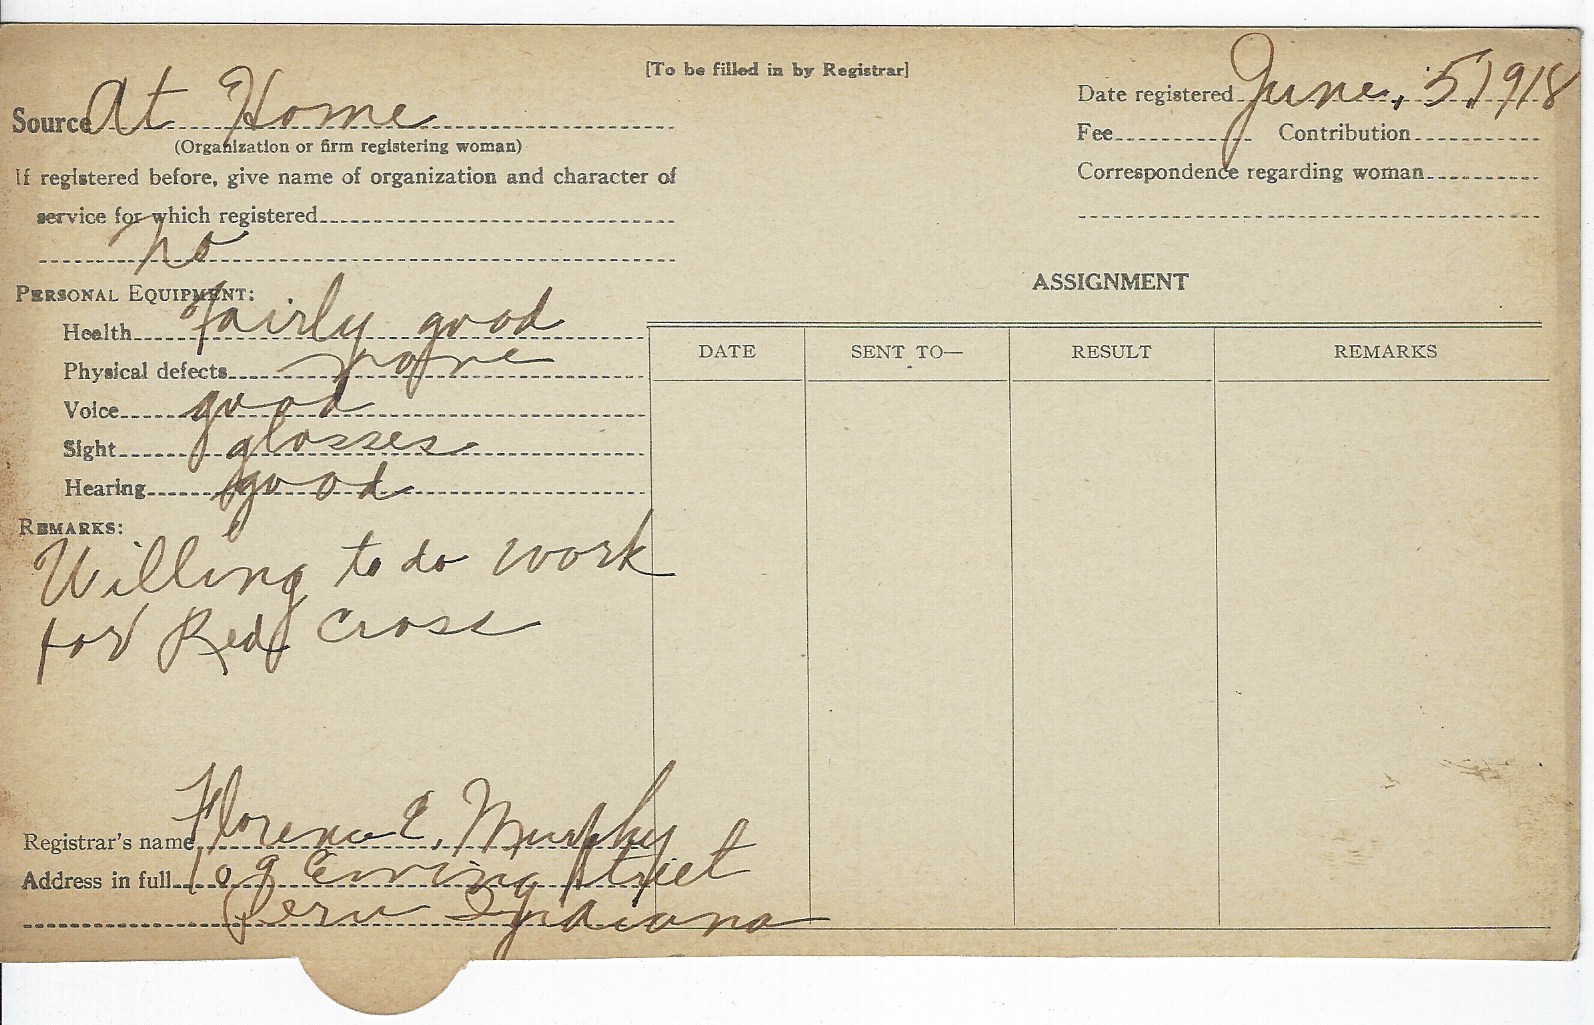 [To be filled in by Registrar]
Source At Home
(Organization or firm registering woman)
If registered before, give name of organization and character of
service for which registered
no
Date registered June, 5, 1918
Fee Contribution
Correspondence regarding woman
PERSONAL EQUIPMENT:
Health Fairly good
Physical defects none
Voice good
Sight glasses
Hearing good
REMARKS:
Willing to do work
for Red Cross
ASSIGNMENT
DATE SENT TO— RESULT REMARKS
Registrar's name Florence E. Murphy
Address in full 109 Ewing Street
Peru Indiana